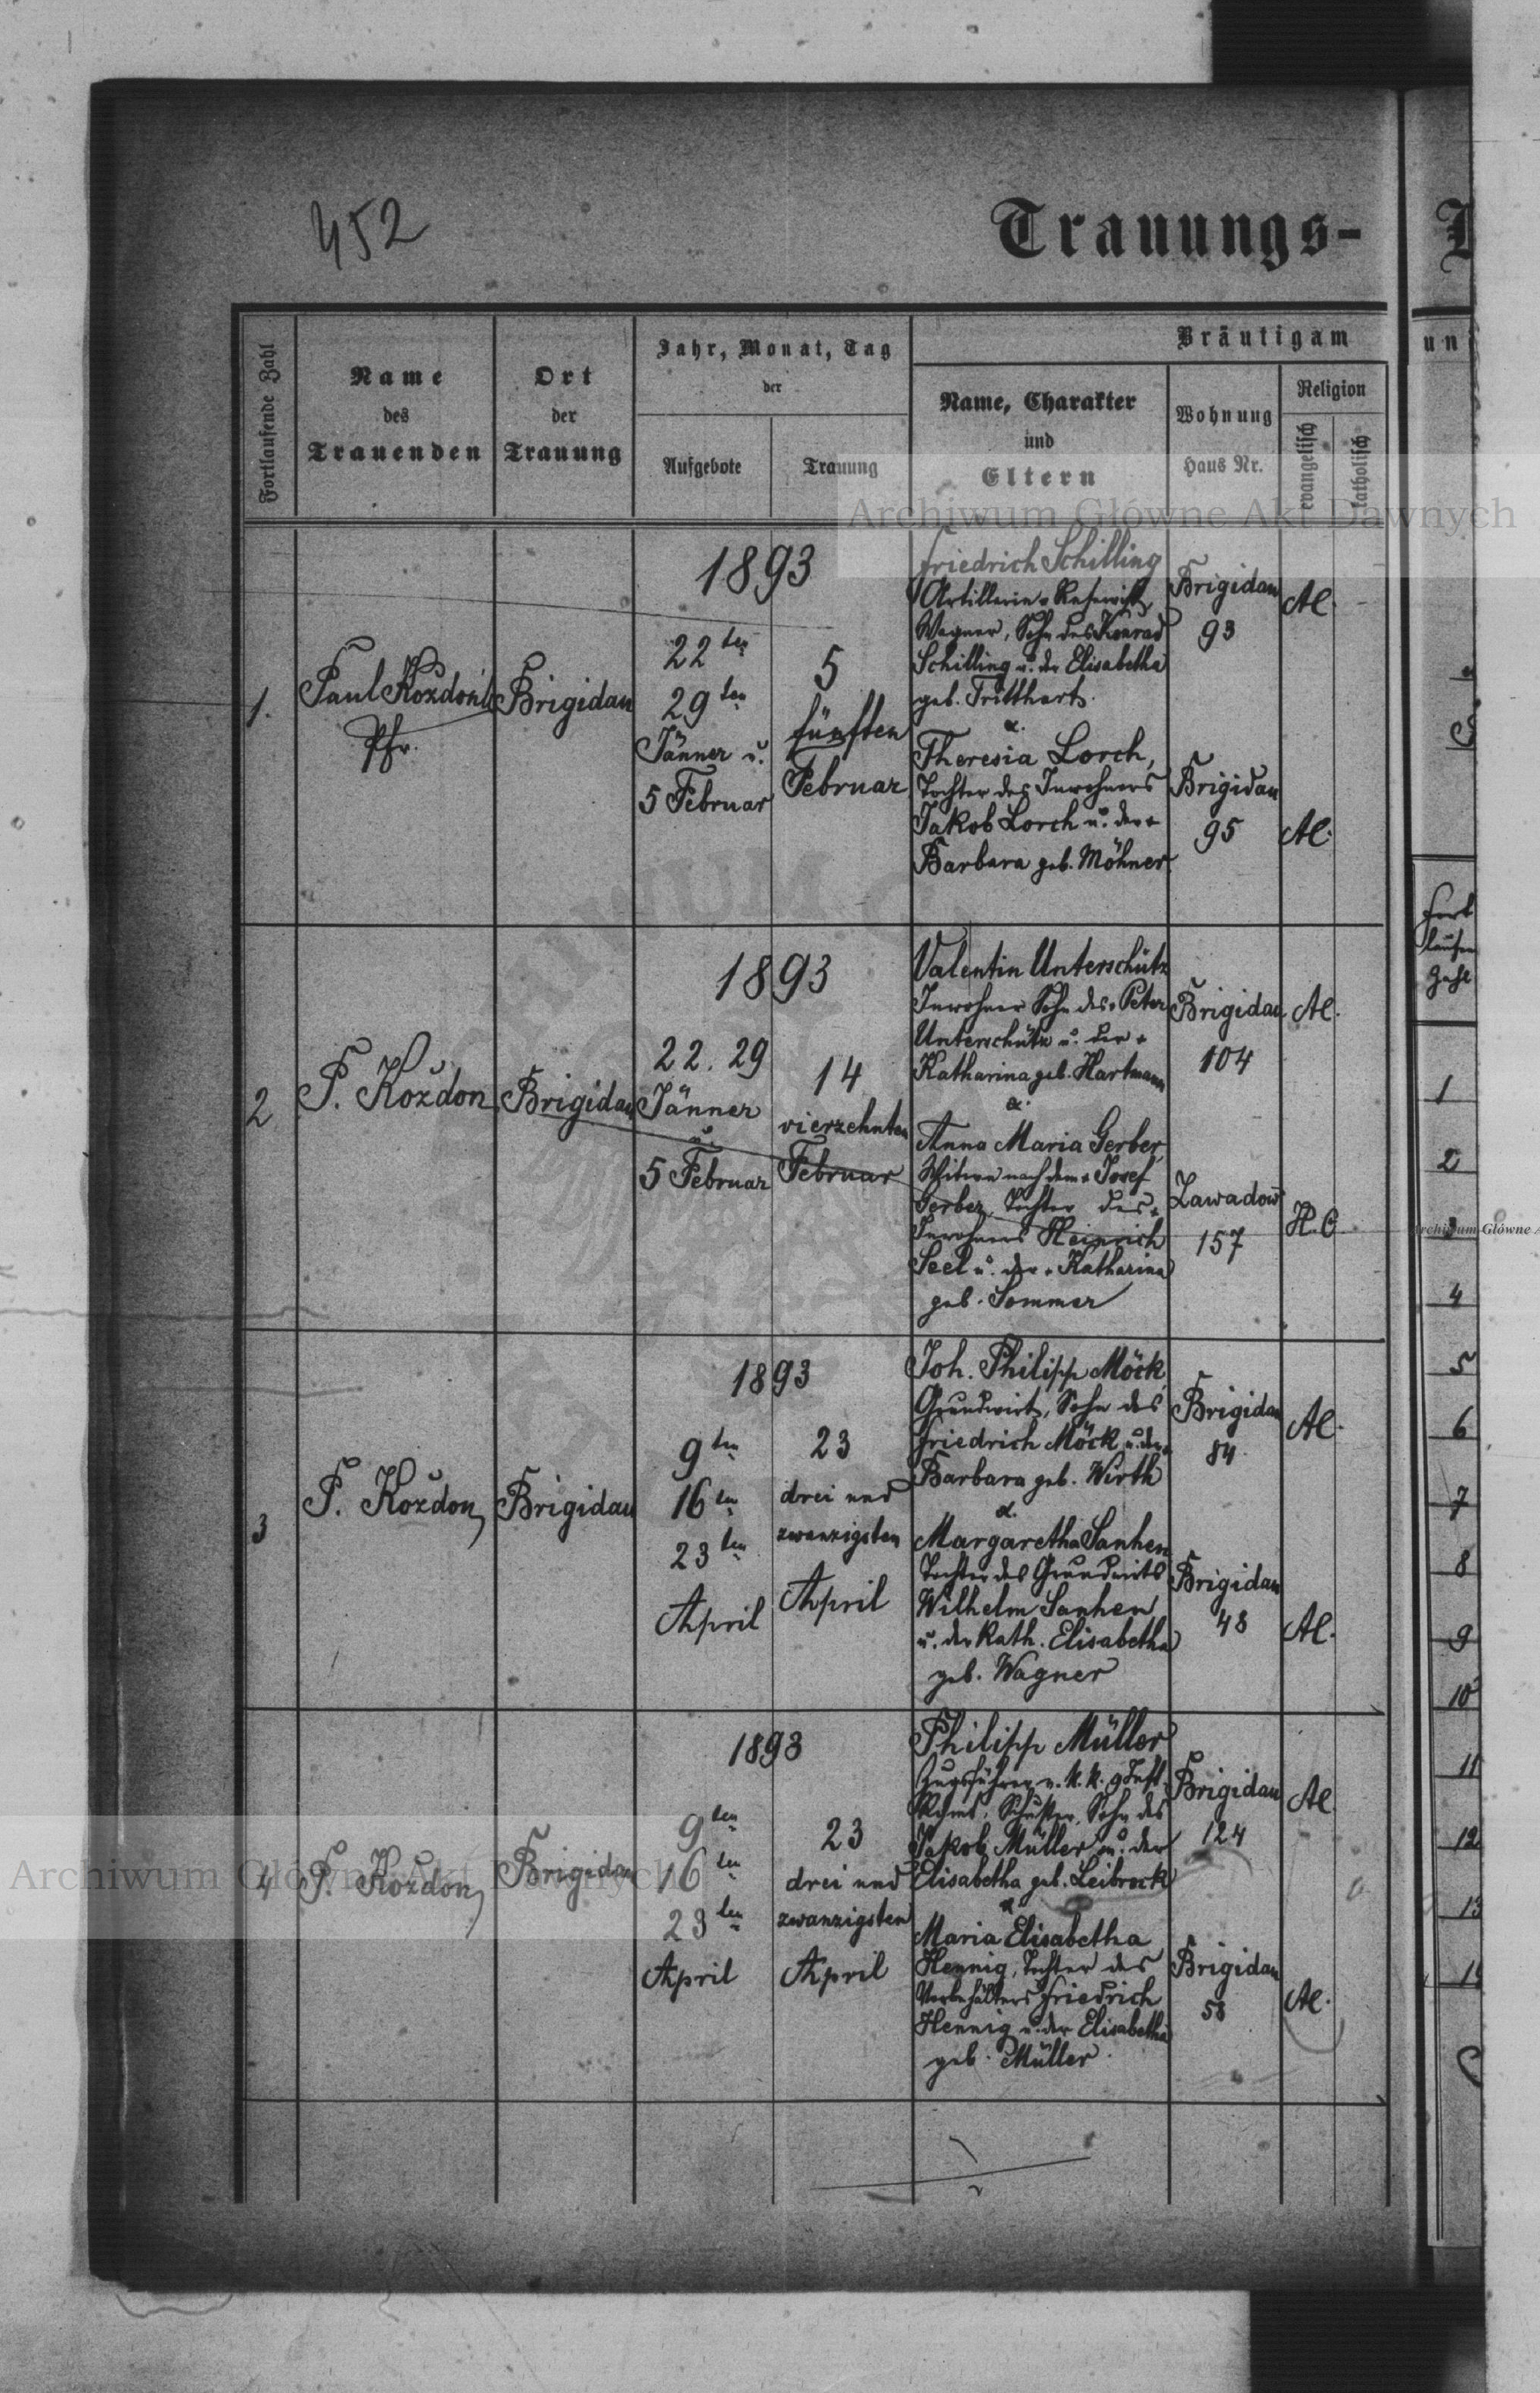 452
Trauungs-
Fortlaufende Zahl
Name
des
Trauenden
Ort
der
Trauung
Jahr, Monat, Tag
der
Aufgebote
Trauung
Bräutigam
Name, Charakter
und
Eltern
Wohnung
Haus Nr.
Religion
evangelisch
katholisch
un
Archiwum Główne Akt Dawnych
1.
Paul Kozdoń
Pfr.
Brigidau
1893
22ten
29ten
Jänner u.
5 Februar
5
fünften
Februar
Friedrich Schilling
Artillerie-Reservist,
Wagner, Sohn des Konrad
Schilling u. der Elisabetha
geb. Tritthart.
&.
Theresia Lorch,
Tochter des Inwohners
Jakob Lorch u. der +
Barbara geb. Möhner.
Brigidau
93
Brigidau
95
AC.
AC.
2
P. Kozdoń
Brigidau
1893
22. 29
Jänner
u.
5 Februar
14
vierzehnten
Februar
Valentin Unterschütz
Inwohner Sohn des + Peter
Unterschütz u. der +
Katharina geb. Hartmann
&.
Anna Maria Gerber,
Witwe nach dem + Josef
Gerber, Tochter des +
Inwohners Heinrich
Seel u. der + Katharina
geb. Sommer
Brigidau
104
Zawadow
157
AC.
H.C.
3
P. Kozdoń
Brigidau
1893
9ten
16ten
23ten
April
23
drei und
zwanzigsten
April
Joh. Philipp Möck,
Grundwirt, Sohn des
Friedrich Möck u. der +
Barbara geb. Wirth
&.
Margaretha Sanhen
Tochter des Grundwirts
Wilhelm Sanhen
u. der Kath. Elisabetha
geb. Wagner
Brigidau
84.
Brigidau
48
AC.
AC.
4
P. Kozdoń
Brigidau
1893
9ten
16ten
23ten
April
23
drei und
zwanzigsten
April
Philipp Müller
Zugsführer Schuster, Sohn des
Jakob Müller u. der
Elisabetha geb. Leibrock
&
Maria Elisabetha
Hennig, Tochter des
Friedrich
Hennig u. der Elisabetha
geb. Müller.
Brigidau
124
Brigidau
58
AC.
AC.
Archiwum Główne Akt Dawnych
Fort
laufen
Zahl
1
2
3
Archiwum Główne A
4
5
6
7
8
9
10
11
12
13